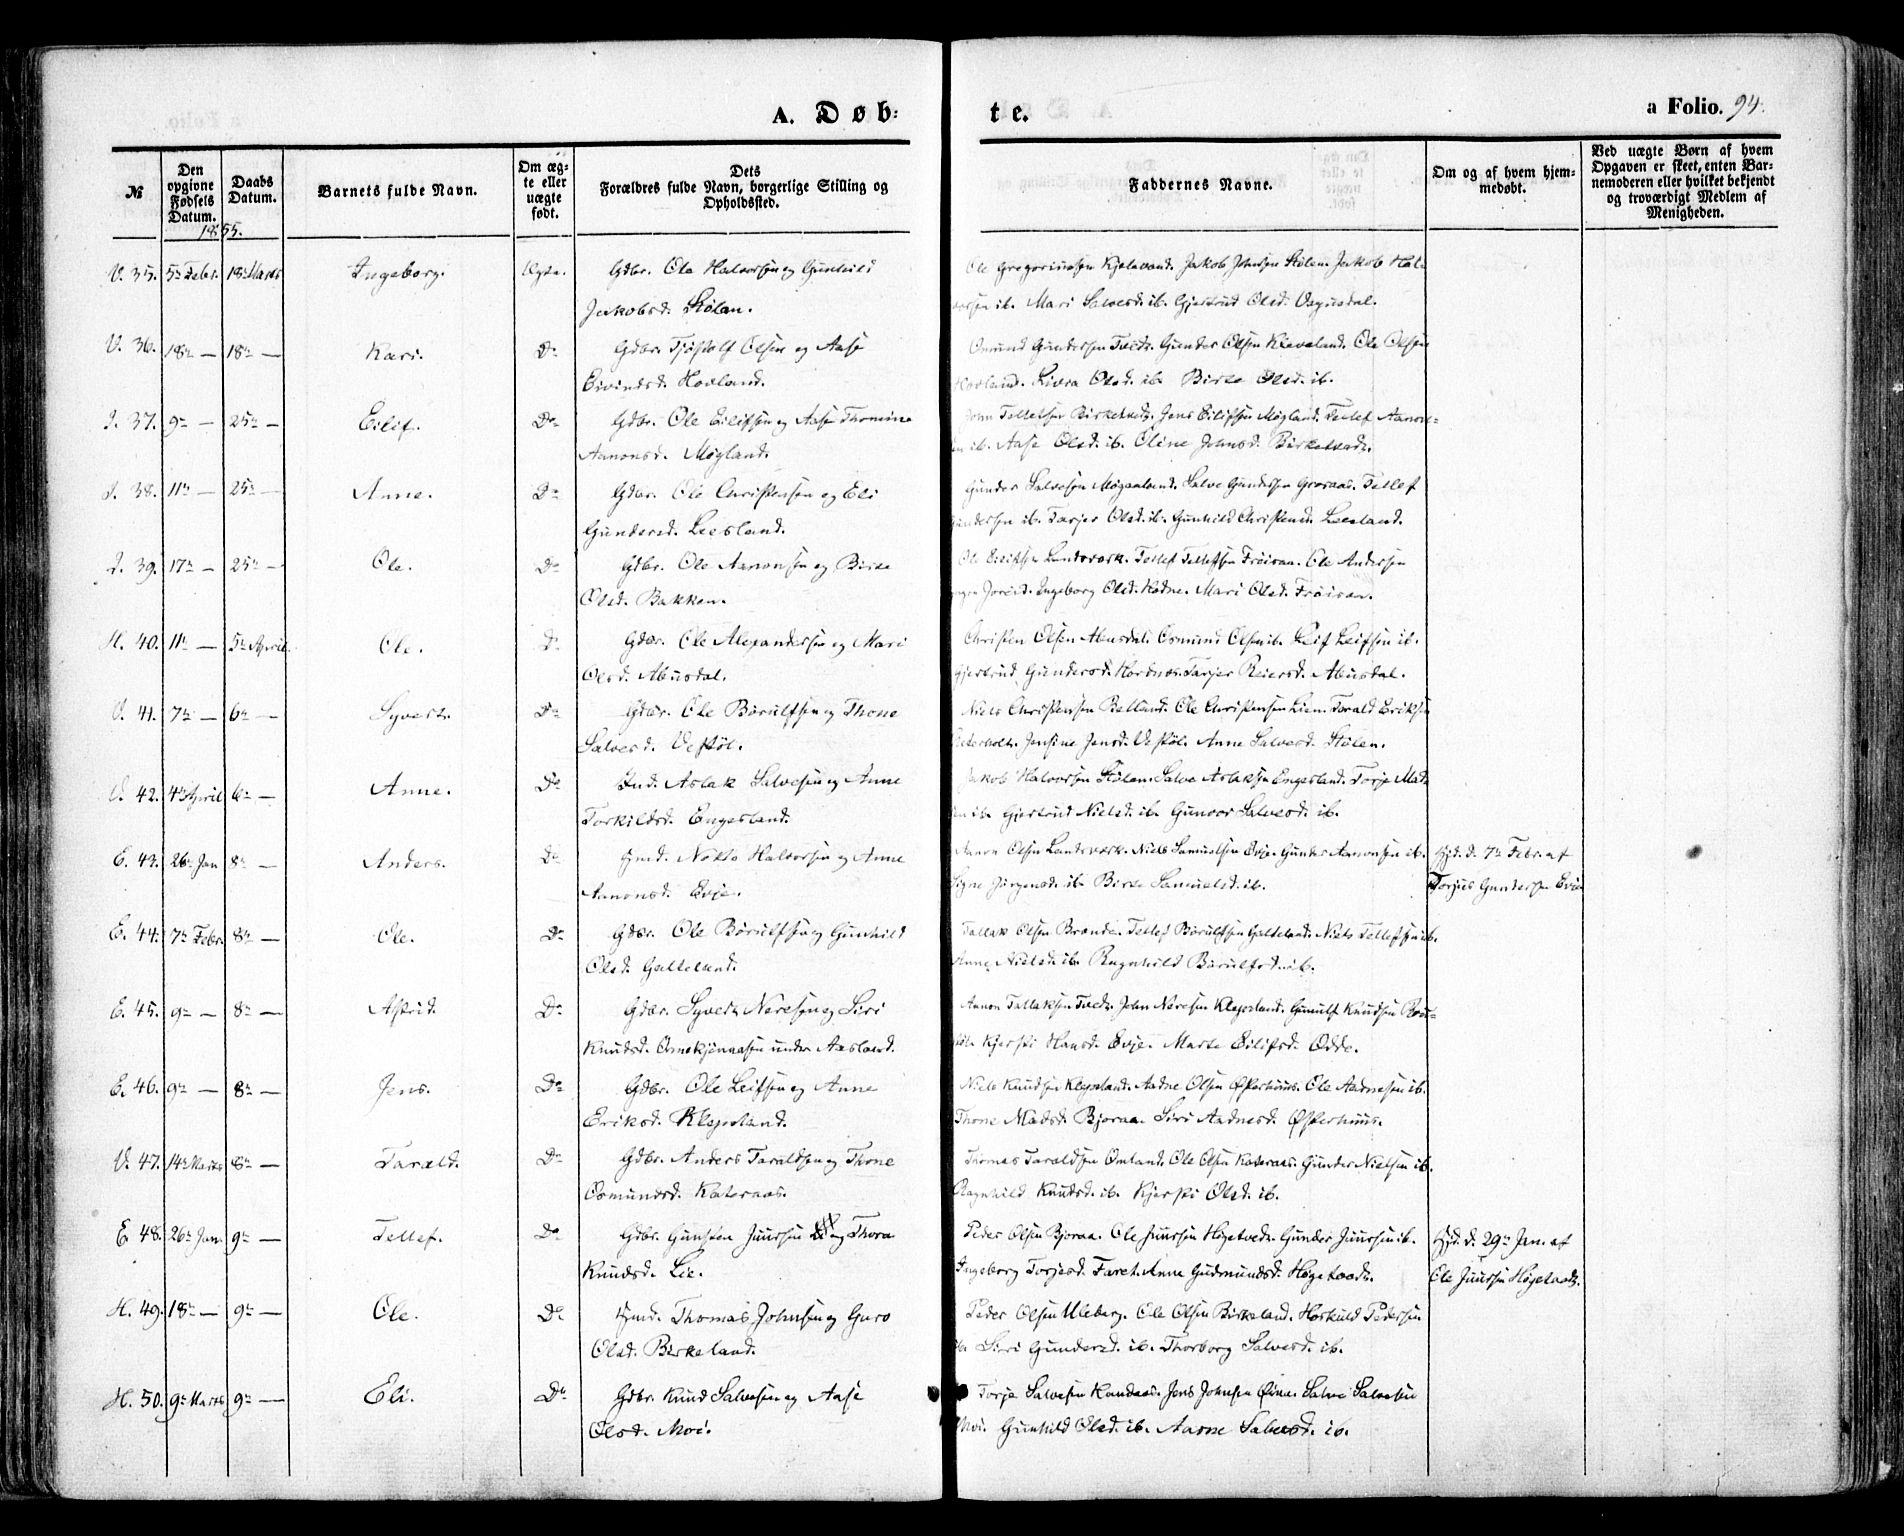 A. Døb:
te.
a Folio. 94.
№
Den opgivne Fødsels Datum.
Daabs Datum.
Barnets fulde Navn.
Om ægte eller uægte født.
Dets Forældres fulde Navn, borgerlige Stilling og Opholdssted.
Faddernes Navne.
Om og af hvem hjemmedøbt.
Ved uægte Børn af hvem Opgaven er skeet, enten Barnemoderen eller hvilket bekjendt og troværdigt Medlem af Menigheden.
1855.
V. 35. 5te Febr. 18de Marts Ingeborg. Ægte. Gdbr. Ole Halvorsen og Gunhild
Jakobsd. Stölen.
Ole Gregoriussen Kjelevand. Jakob Johnsen Stölen. Jakob Hal-
vorsen ib. Mari Salvesd. ib. Gjertrud Olsd.
V. 36. 18de — 18de — Kari. Do Gdbr. Tjöstolf Olsen og Aase
Eivindsd. Hovland.
Osmund Gundersen Tveit. Gunder Olsen Kleveland. Ole Olsen
Hovland. Livra Olsd. ib. Birte Olsd. ib.
I. 37. 9de — 25de — Eilif. Do Gdbr. Ole Eilifsen og Aase Thomine
Aanonsd. Mögland.
John Tellefsen Birketveit. Jens Eilifsen Mögland. Tellef Aanon-
sen ib. Aase Olsd. ib. Oline Johnsd. Birketveit.
I. 38. 11te — 25de — Anne. Do Gdbr. Ole Christensen og Eli
Gundersd. Leesland.
Gunder Salvesen Mögaaland. Salve Gundersen Grosaas. Tellef
Gundersen ib. Tarjer Olsd. ib. Gunhild Christensd. Leesland.
I. 39. 17de — 25de — Ole. Do Gdbr. Ole Aanonsen og Birte
Olsd. Bakken.
Ole Eiriksen Landsverk. Tellef Tellefsen Fröisaa. Ole Andersen
Ingeborg Olsd. Mari Olsd.
H. 40. 11te — 5te April Ole. Do Gdbr. Ole Alexandersen og Mari
Olsd. Abusdal.
Christen Olsen Abusdal. Osmund Olsen ib. Leif Leifsen ib.
Gjertrud Gundersd. Hordnes. Tarjer Reiersd. Abusdal.
V. 41. 7de — 6te — Syvert. Do Gdbr. Ole Börulfsen og Thone
Salvesd. Vestöl.
Niels Christensen Belland. Ole Christensen Lien. Tarald Eriksen
Jensine Jensd. Vestöl. Anne Salvesd. Stölen.
V. 42. 4de April 6te — Anne. Do Ind. Aslak Salvesen og Anne
Torkildsd. Engesland.
Jakob Halvorsen Stölen. Salve Aslaksen Engesland. Torje Mad-
sen ib. Gjertrud Nielsd. ib. Gunvor Salvesd. ib.
E. 43. 26de Jan 8de — Anders. Do Hmd. Nokto Halvorsen og Anne
Aanonsd. Evje.
Aanon Olsen Landsverk. Niels Samuelsen Evje. Gunder Aanonsen ib.
Signe Jörgensd. ib. Birte Samuelsd. ib.
Hjd. d. 7de Febr. af
Torjus Gundersen Evje
E. 44. 7de Febr. 8de — Ole. Do Gdbr. Ole Börulfsen og Gunhild
Olsd. Galteland.
Tallak Olsen Brande. Tellef Börulfsen Galteland. Niels Tellefsen ib.
Anne Nielsd. ib. Ragnhild Börulfsd. ib.
E. 45. 9de — 8de — Astrid. Do Gdbr. Syvert Neresen og Siri
Knudsd. Omekjönnaasen under Aasland.
Aanon Tallaksen Tveit. John Neresen Klepsland. Gunulf Knudsen
Kjersti Hansd. Evje. Marte Eilifsd. Odde.
E. 46. 9de — 8de — Jens. Do Gdbr. Ole Leifsen og Anne
Eriksd. Klepsland.
Niels Knudsen Klepsland. Aadne Olsen Østerhuus. Ole Aadnesen ib.
Thone Madsd. Bjoraa. Siri Aadnesd. Østerhuus.
V. 47. 14de Marts 8de — Tarald. Do Gdbr. Anders Taraldsen og Thone
Osmundsd. Kateraas.
Thomas Taraldsen Omland. Ole Olsen Kateraas. Gunder Nielsen ib.
Ragnhild Knudsd. ib. Kjersti Olsd. ib.
E. 48. 26de Jan. 9de — Tellef. Do Gdbr. Gunsten Juursen og Thora
Knudsd. Lie.
Peder Olsen Bjoraa. Ole Juursen Högetveit. Gunder Juursen ib.
Ingeborg Torjesd. Faret. Anne Gudmundsd. Högetvedt.
Hjd. d. 29de Jan. af
Ole Juursen Högetvedt.
H. 49. 18de — 9de — Ole. Do Hmd. Thomas Johnsen og Guro
Olsd. Birkeland.
Peder Olsen Uleberg. Ole Olsen Birkeland. Horkuld Pedersen
ib. Siri Gundersd. ib. Thorborg Salvesd. ib.
H. 50. 9de Marts 9de — Eli. Do Gdbr. Knud Salvesen og Aase
Olsd. Moi.
Torje Salvesen Kandaas. Jens Johnsen Öine. Salve Salvesen
Moi. Gunhild Olsd. ib. Aasne Salvesd. ib.